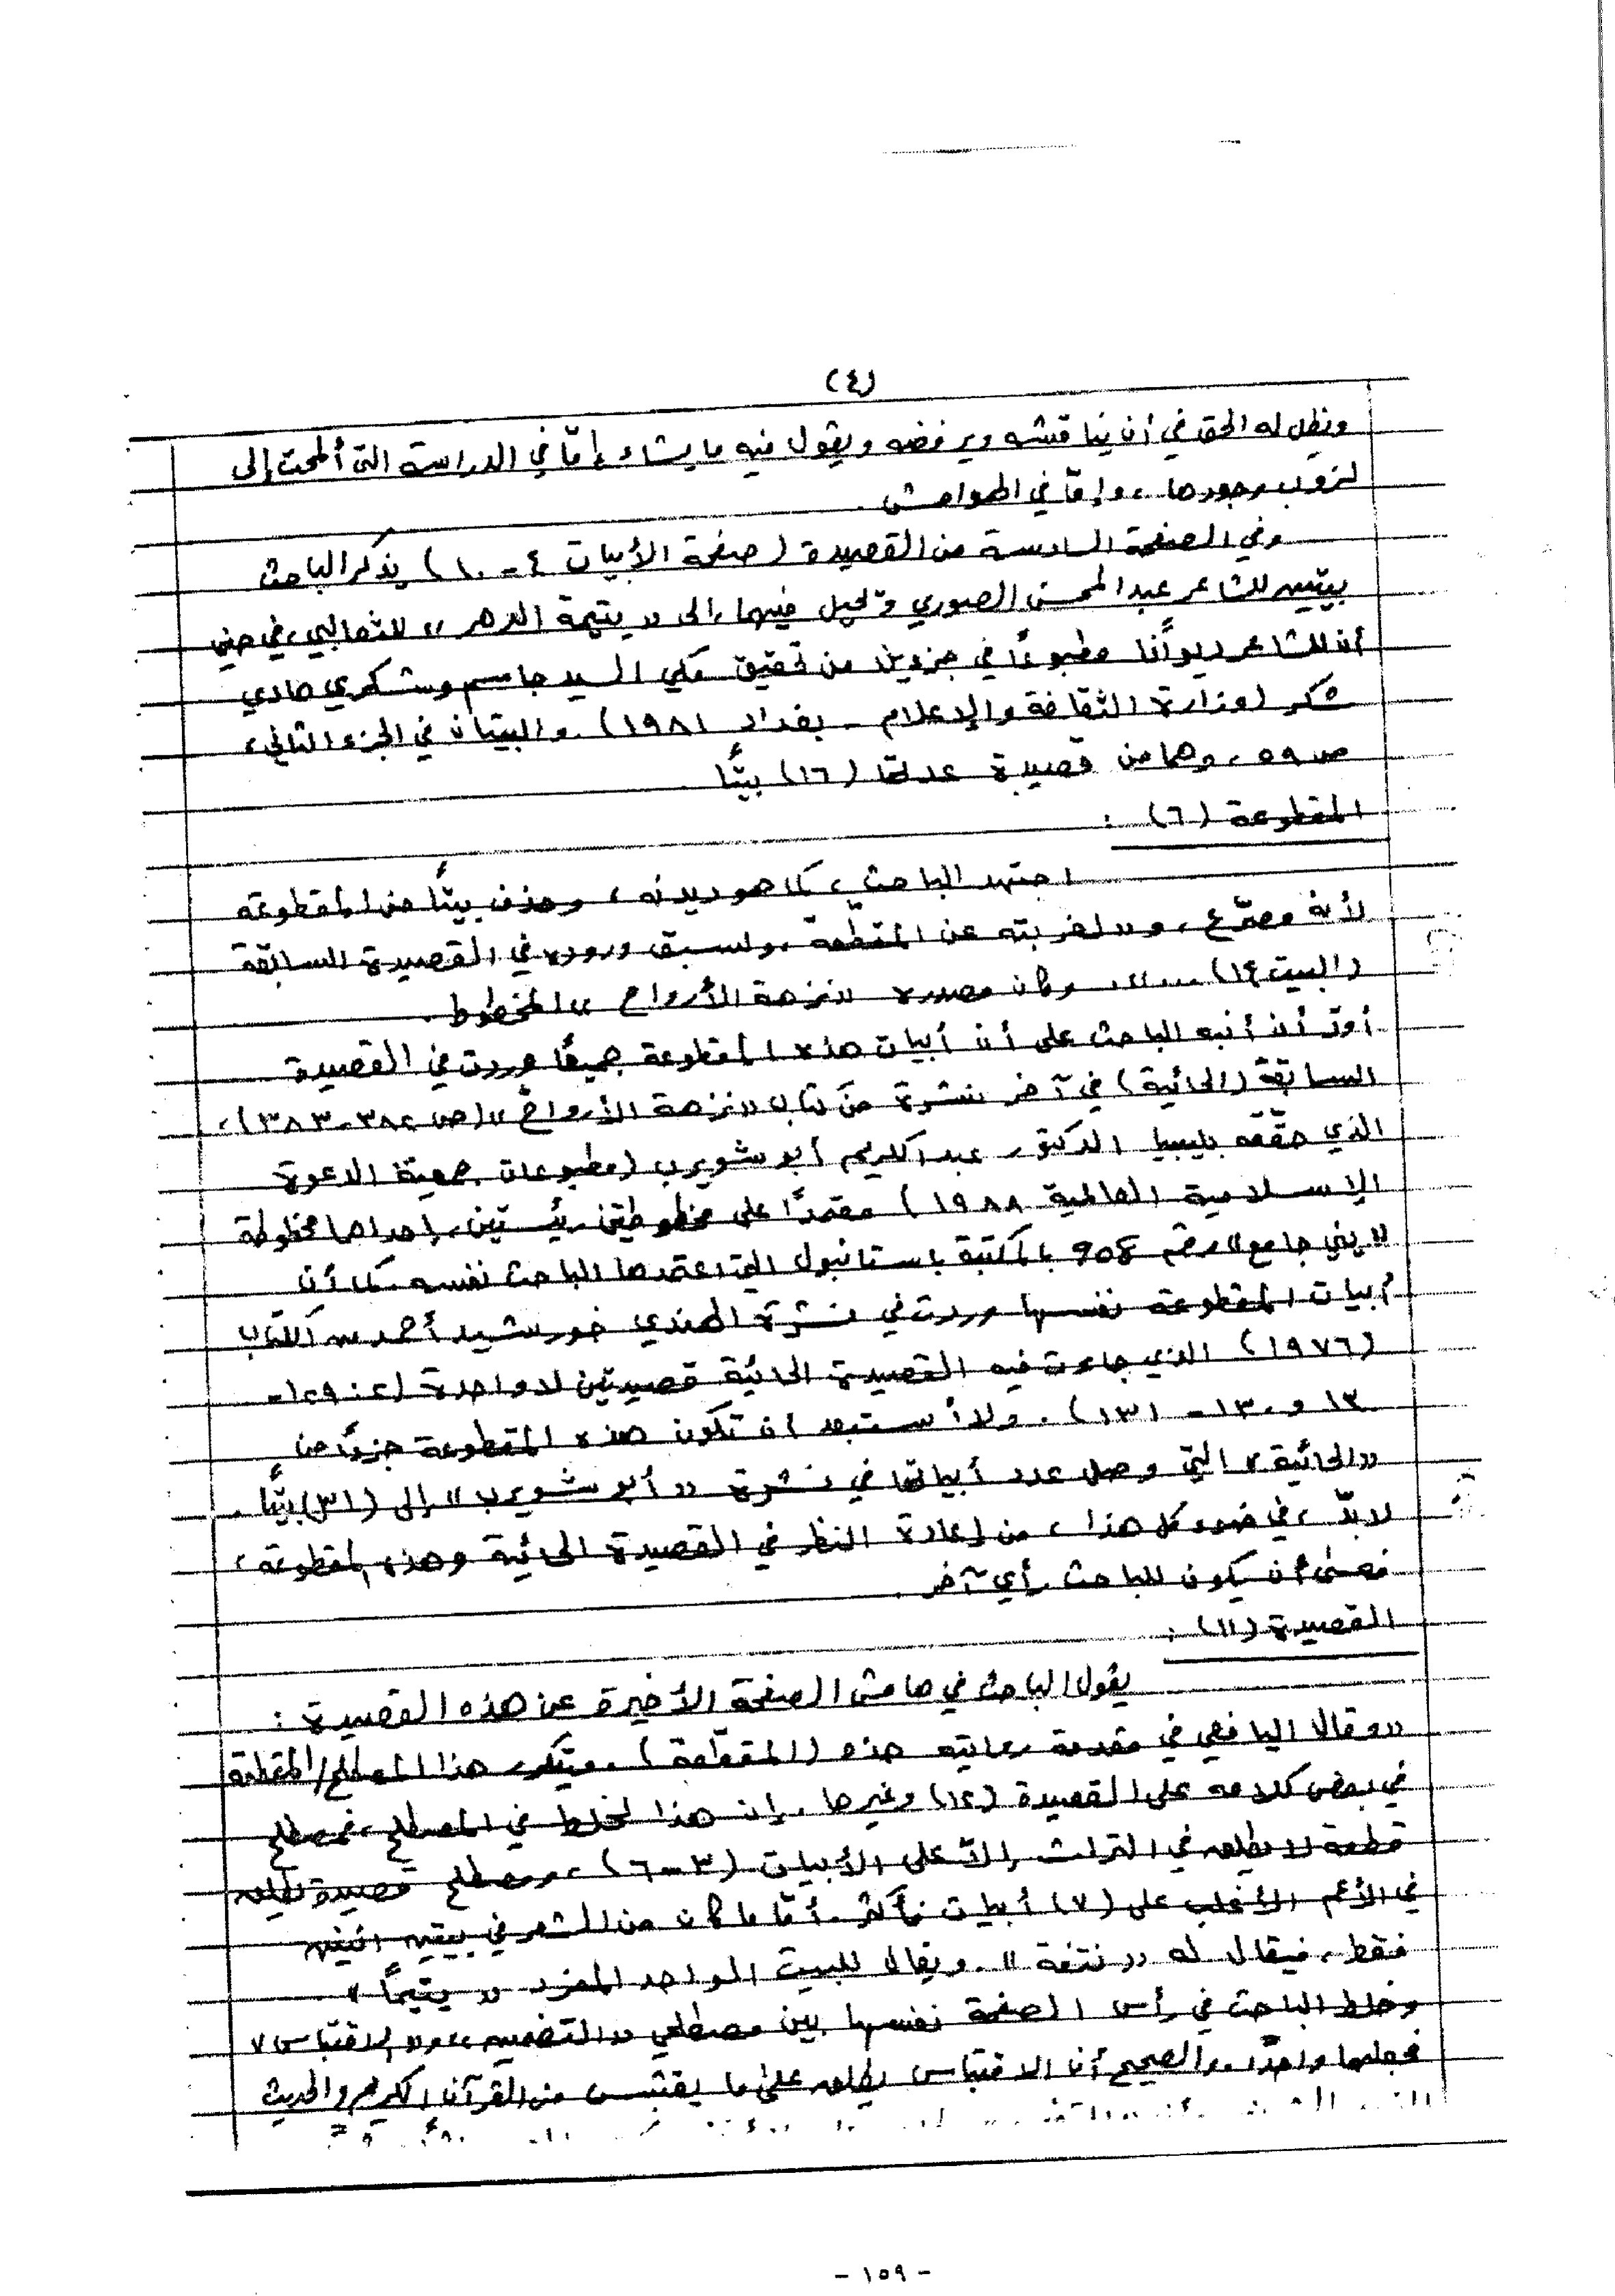 (٤)
ويظل له الحق في أن يناقشه ويرفضه ويقول فيه ما يشاء إمّا في الدراسة التي ألمحت إلى
لزوب وجودها، وإمّا في الهوامش.
وفي الصفحة السادسة من القصيدة (صفحة الأبيات ٤ - ١٠) يذكر الباحث
بيتين للشاعر عبد المحسن الصوري ويحيل فيهما إلى «يتيمة الدهر» للثعالبي، في حين
أن للشاعر ديوانًا مطبوعًا في جزوين من تحقيق مكي السيد جاسم وشكري هادي
شكر (وزارة الثقافة والإعلام - بغداد ١٩٨١). والبيتان في الجزء الثاني،
ص ٥٩، وهما من قصيدة عدتها (١٦) بيتًا
المقطوعة (٦) :
اجتهد الباحث، كما هو ديدنه، وحذف بيتًا من المقطوعة
لأنه مصرّع، و«لغربته عن المقطّعة، ولسبق وروده في القصيدة السابقة
(البيت ١٤) ...». وكان مصدره «نزهة الأرواح» المخطوط.
أودّ أن أنبه الباحث على أن أبيات هذه المقطوعة جميعًا وردت في القصيدة
السابقة (الحائية) في آخر نشرة من كتاب «نزهة الأرواح» (ص ٣٨٢ - ٣٨٣)،
الذي حققه بليبيا الدكتور عبد الكريم أبو شويرب (مطبوعات جمعية الدعوة
الإسلامية العالمية ١٩٨٨) معتمدًا على مخطوطتين رئيستين، إحداها مخطوطة
«يني جامع» رقم 908 بالمكتبة باستانبول التي اعتمدها الباحث نفسه. كما أن
أبيات المقطوعة نفسها وردت في نشرة الهندي خورشيد أحمد من الكتاب
(١٩٧٦) الذي جاءت فيه القصيدة الحائية قصيدتين لا واحدة (٢ : ١٢٩ -
١٣٠ و ١٣٠ - ١٣١). ولا أستبعد أن تكون هذه المقطوعة جزءًا من
«الحائية» التي وصل عدد أبياتها في نشرة «أبو شويرب» إلى (٣١) بيتًا.
لا بدّ، في ضوء كل هذا، من إعادة النظر في القصيدة الحائية وهذه المقطوعة،
فعسى أن يكون للباحث رأي آخر.
القصيدة (١١) :
يقول الباحث في هامش الصفحة الأخيرة عن هذه القصيدة :
«وقال اليافعي في مقدمة روايته هذه (المقطّعة). ويتكرر هذا المصطلح/المقطعة
في بعض كلامه على القصيدة (١٢) وغيرها. إن هذا لخلط في المصطلح، فمصطلح
قطعة لا يطلق في التراث إلاّ على الأبيات (٣ - ٦)، ومصطلح قصيدة يطلق
في الأعم الأغلب على (٧) أبيات فأكثر. أمّا ما كان من الشعر في بيتين اثنين
فقط، فيقال له «نتفة». ويقال للبيت الواحد المفرد «يتيمًا».
وخلط الباحث في رأس الصفحة نفسها بين مصطلحي «التضمين» و«الاقتباس»
فجعلهما واحدًا. والصحيح أن الاقتباس يطلق على ما يقتبس من القرآن الكريم والحديث
- ١٥٩ -